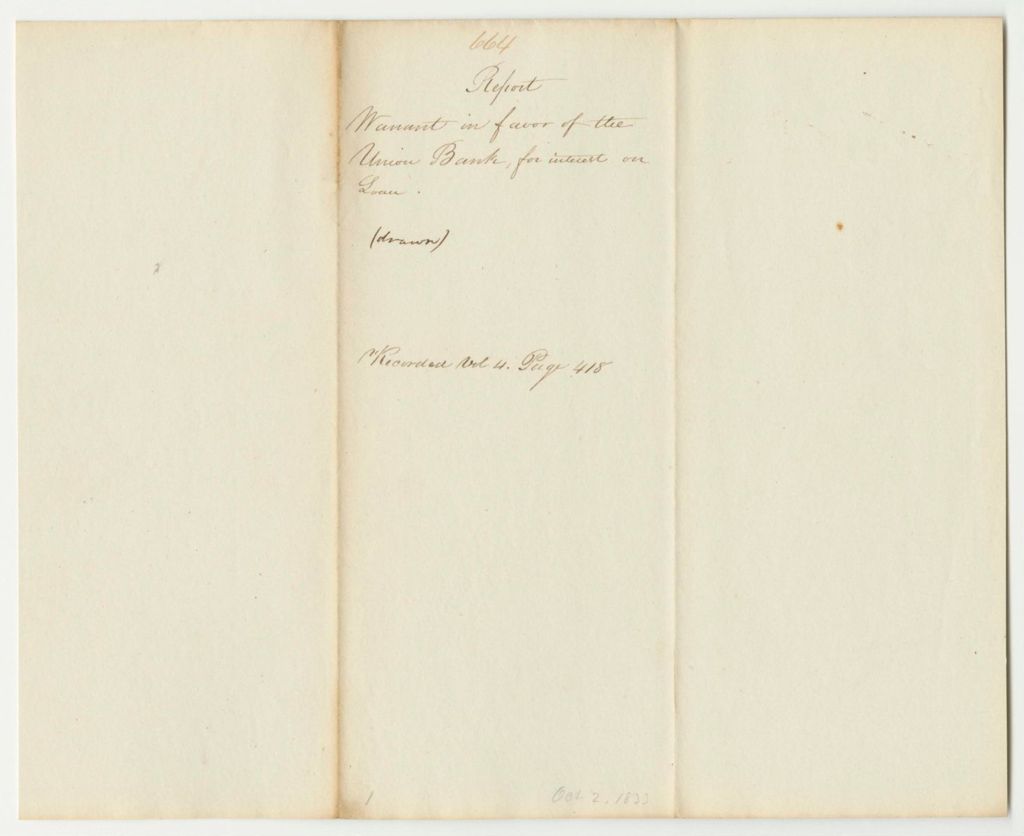 664
Report
Warrant in favor of the
Union Bank, for interest on
Loan.
(drawn)
Recorded Vol 4. Page 418
1
Oct 2, 1833